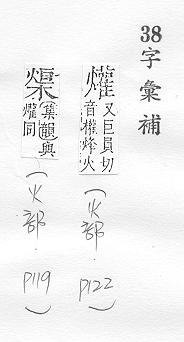 38字彙補
爟
又巨員切
音權烽火
(火部 P122)
集韻與
爟同
(火部 P119)